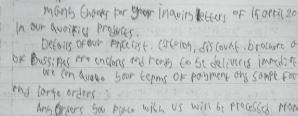 many thanks for your inquiry letters of 15 april 20
In our qualities products.
Details of our pricelist, catalog, discount, brocure a
of are enclosed and ready to be delivered immedi
We can quote your terms of payment any
and large orders.
Any orders you place with us will be processed prom